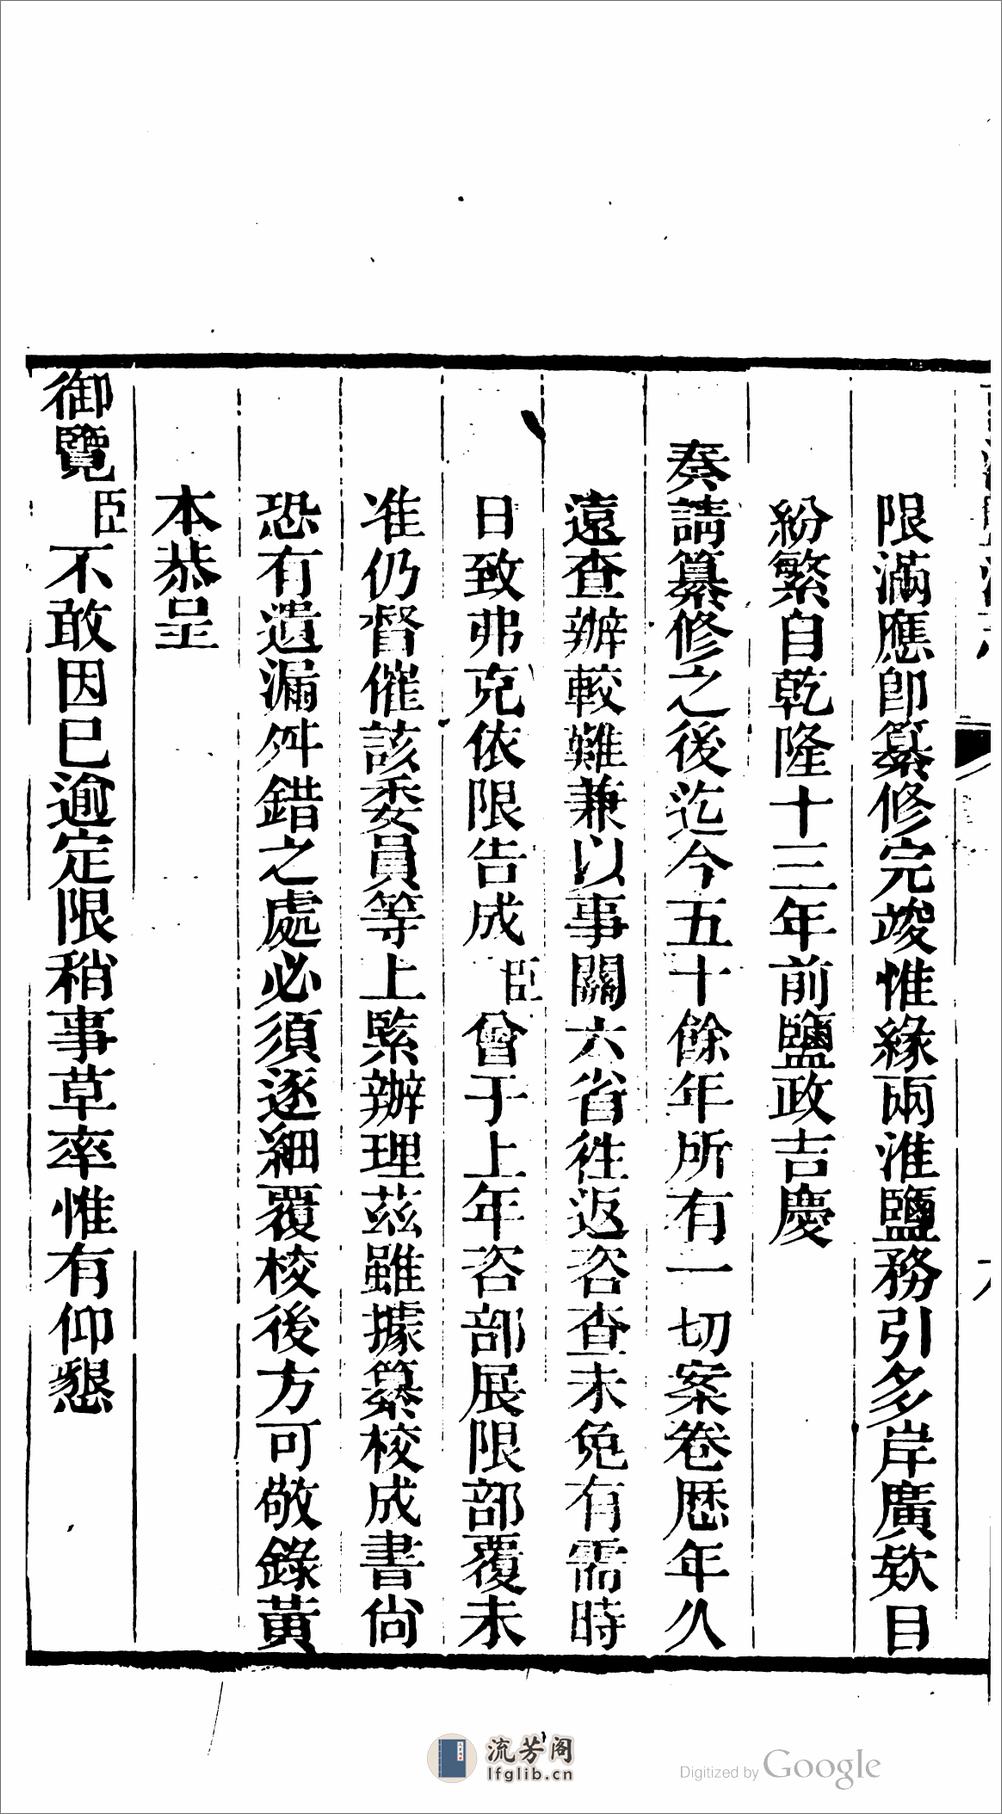 限滿應卽纂修完竣惟緣兩淮鹽務引多岸廣欵目
紛繁自乾隆十三年前鹽政吉慶
奏請纂修之後迄今五十餘年所有一切案卷歷年久
遠查辦較難兼以事關六省徃返咨查未免有需時
日致弗克依限告成臣曾于上年咨部展限部覆未
准仍督催該委員等上緊辦理茲雖據纂校成書尙
恐有遺漏舛錯之處必須逐細覆校後方可敬錄黃
本恭呈
御覽臣不敢因已逾定限稍事草率惟有仰懇
流芳阁
lfglib.cn
Digitized by Google